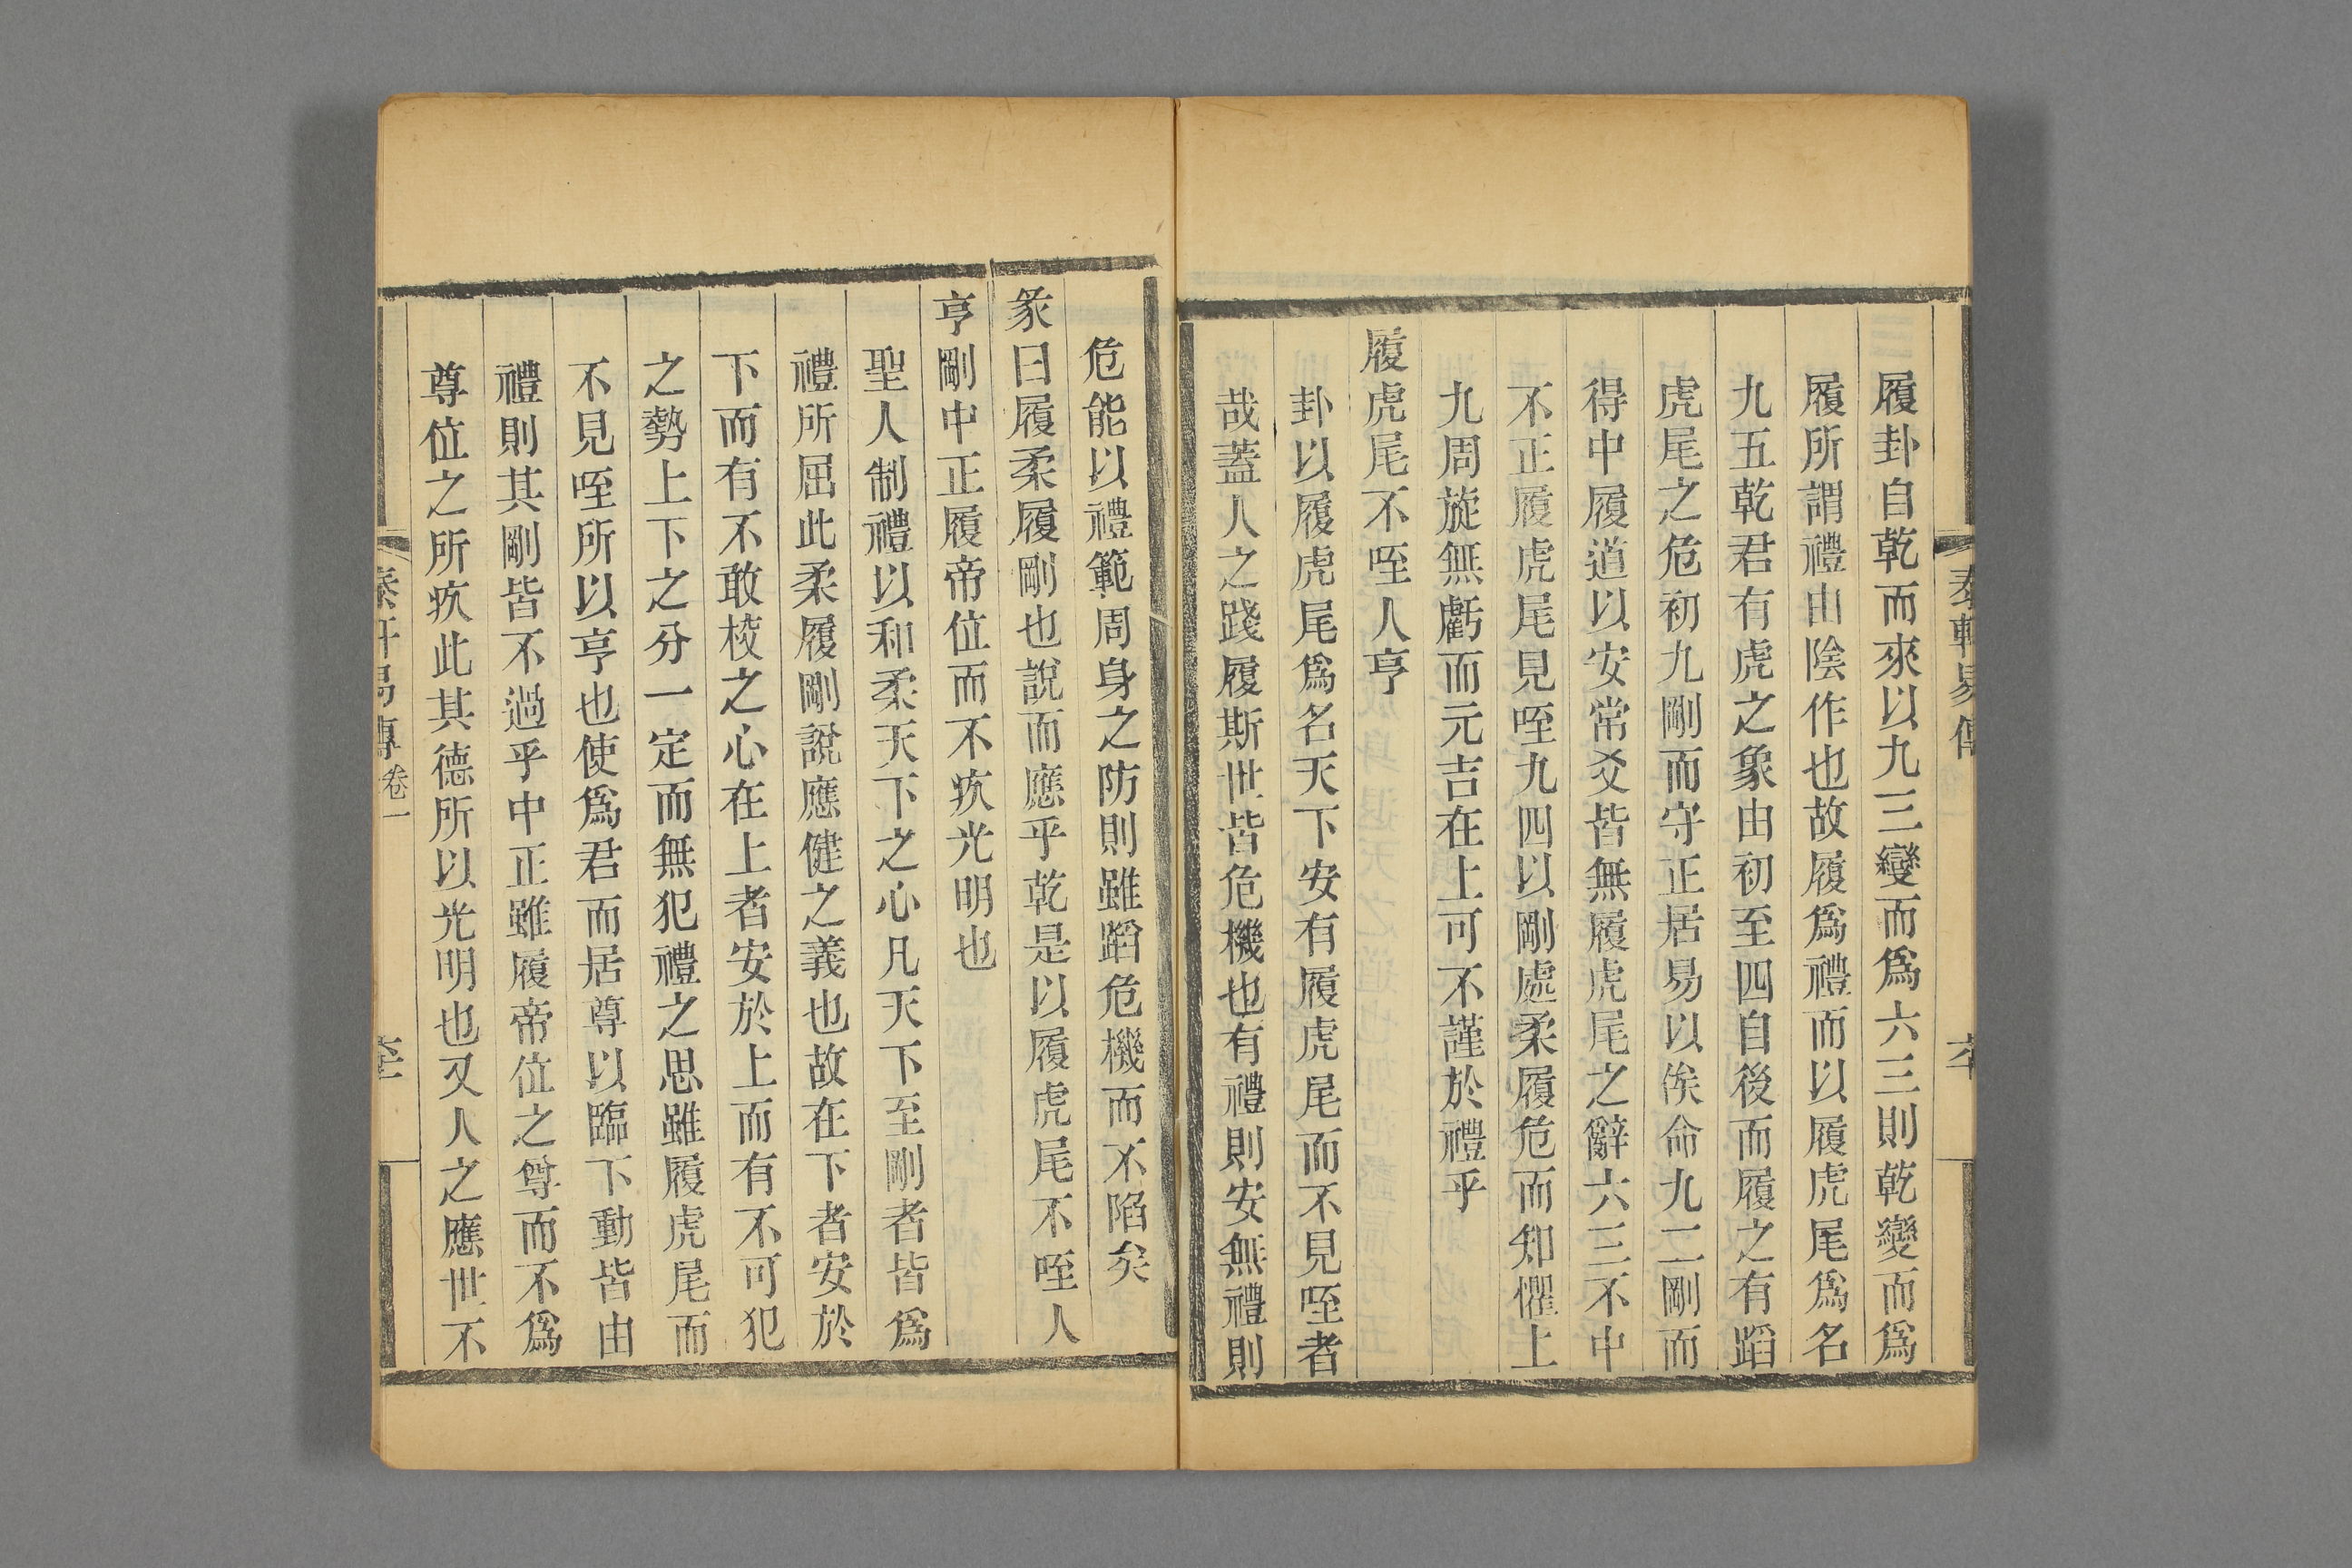 履卦自乾而來以九三變而爲六三則乾變而爲
履所謂禮由陰作也故履爲禮而以履虎尾爲名
九五乾君有虎之象由初至四自後而履之有蹈
虎尾之危初九剛而守正居易以俟命九二剛而
得中履道以安常爻皆無履虎尾之辭六三不中
不正履虎尾見咥九四以剛處柔履危而知懼上
九周旋無虧而元吉在上可不謹於禮乎
履虎尾不咥人亨
卦以履虎尾爲名天下安有履虎尾而不見咥者
哉蓋人之踐履斯世皆危機也有禮則安無禮則
危能以禮範周身之防則雖蹈危機而不陷矣
彖曰履柔履剛也說而應乎乾是以履虎尾不咥人
亨剛中正履帝位而不疚光明也
聖人制禮以和柔天下之心凡天下至剛者皆爲
禮所屈此柔履剛說應健之義也故在下者安於
下而有不敢校之心在上者安於上而有不可犯
之勢上下之分一定而無犯禮之思雖履虎尾而
不見咥所以亨也使爲君而居尊以臨下動皆由
禮則其剛皆不過乎中正雖履帝位之尊而不爲
尊位之所疚此其德所以光明也又人之應世不
易傳卷一